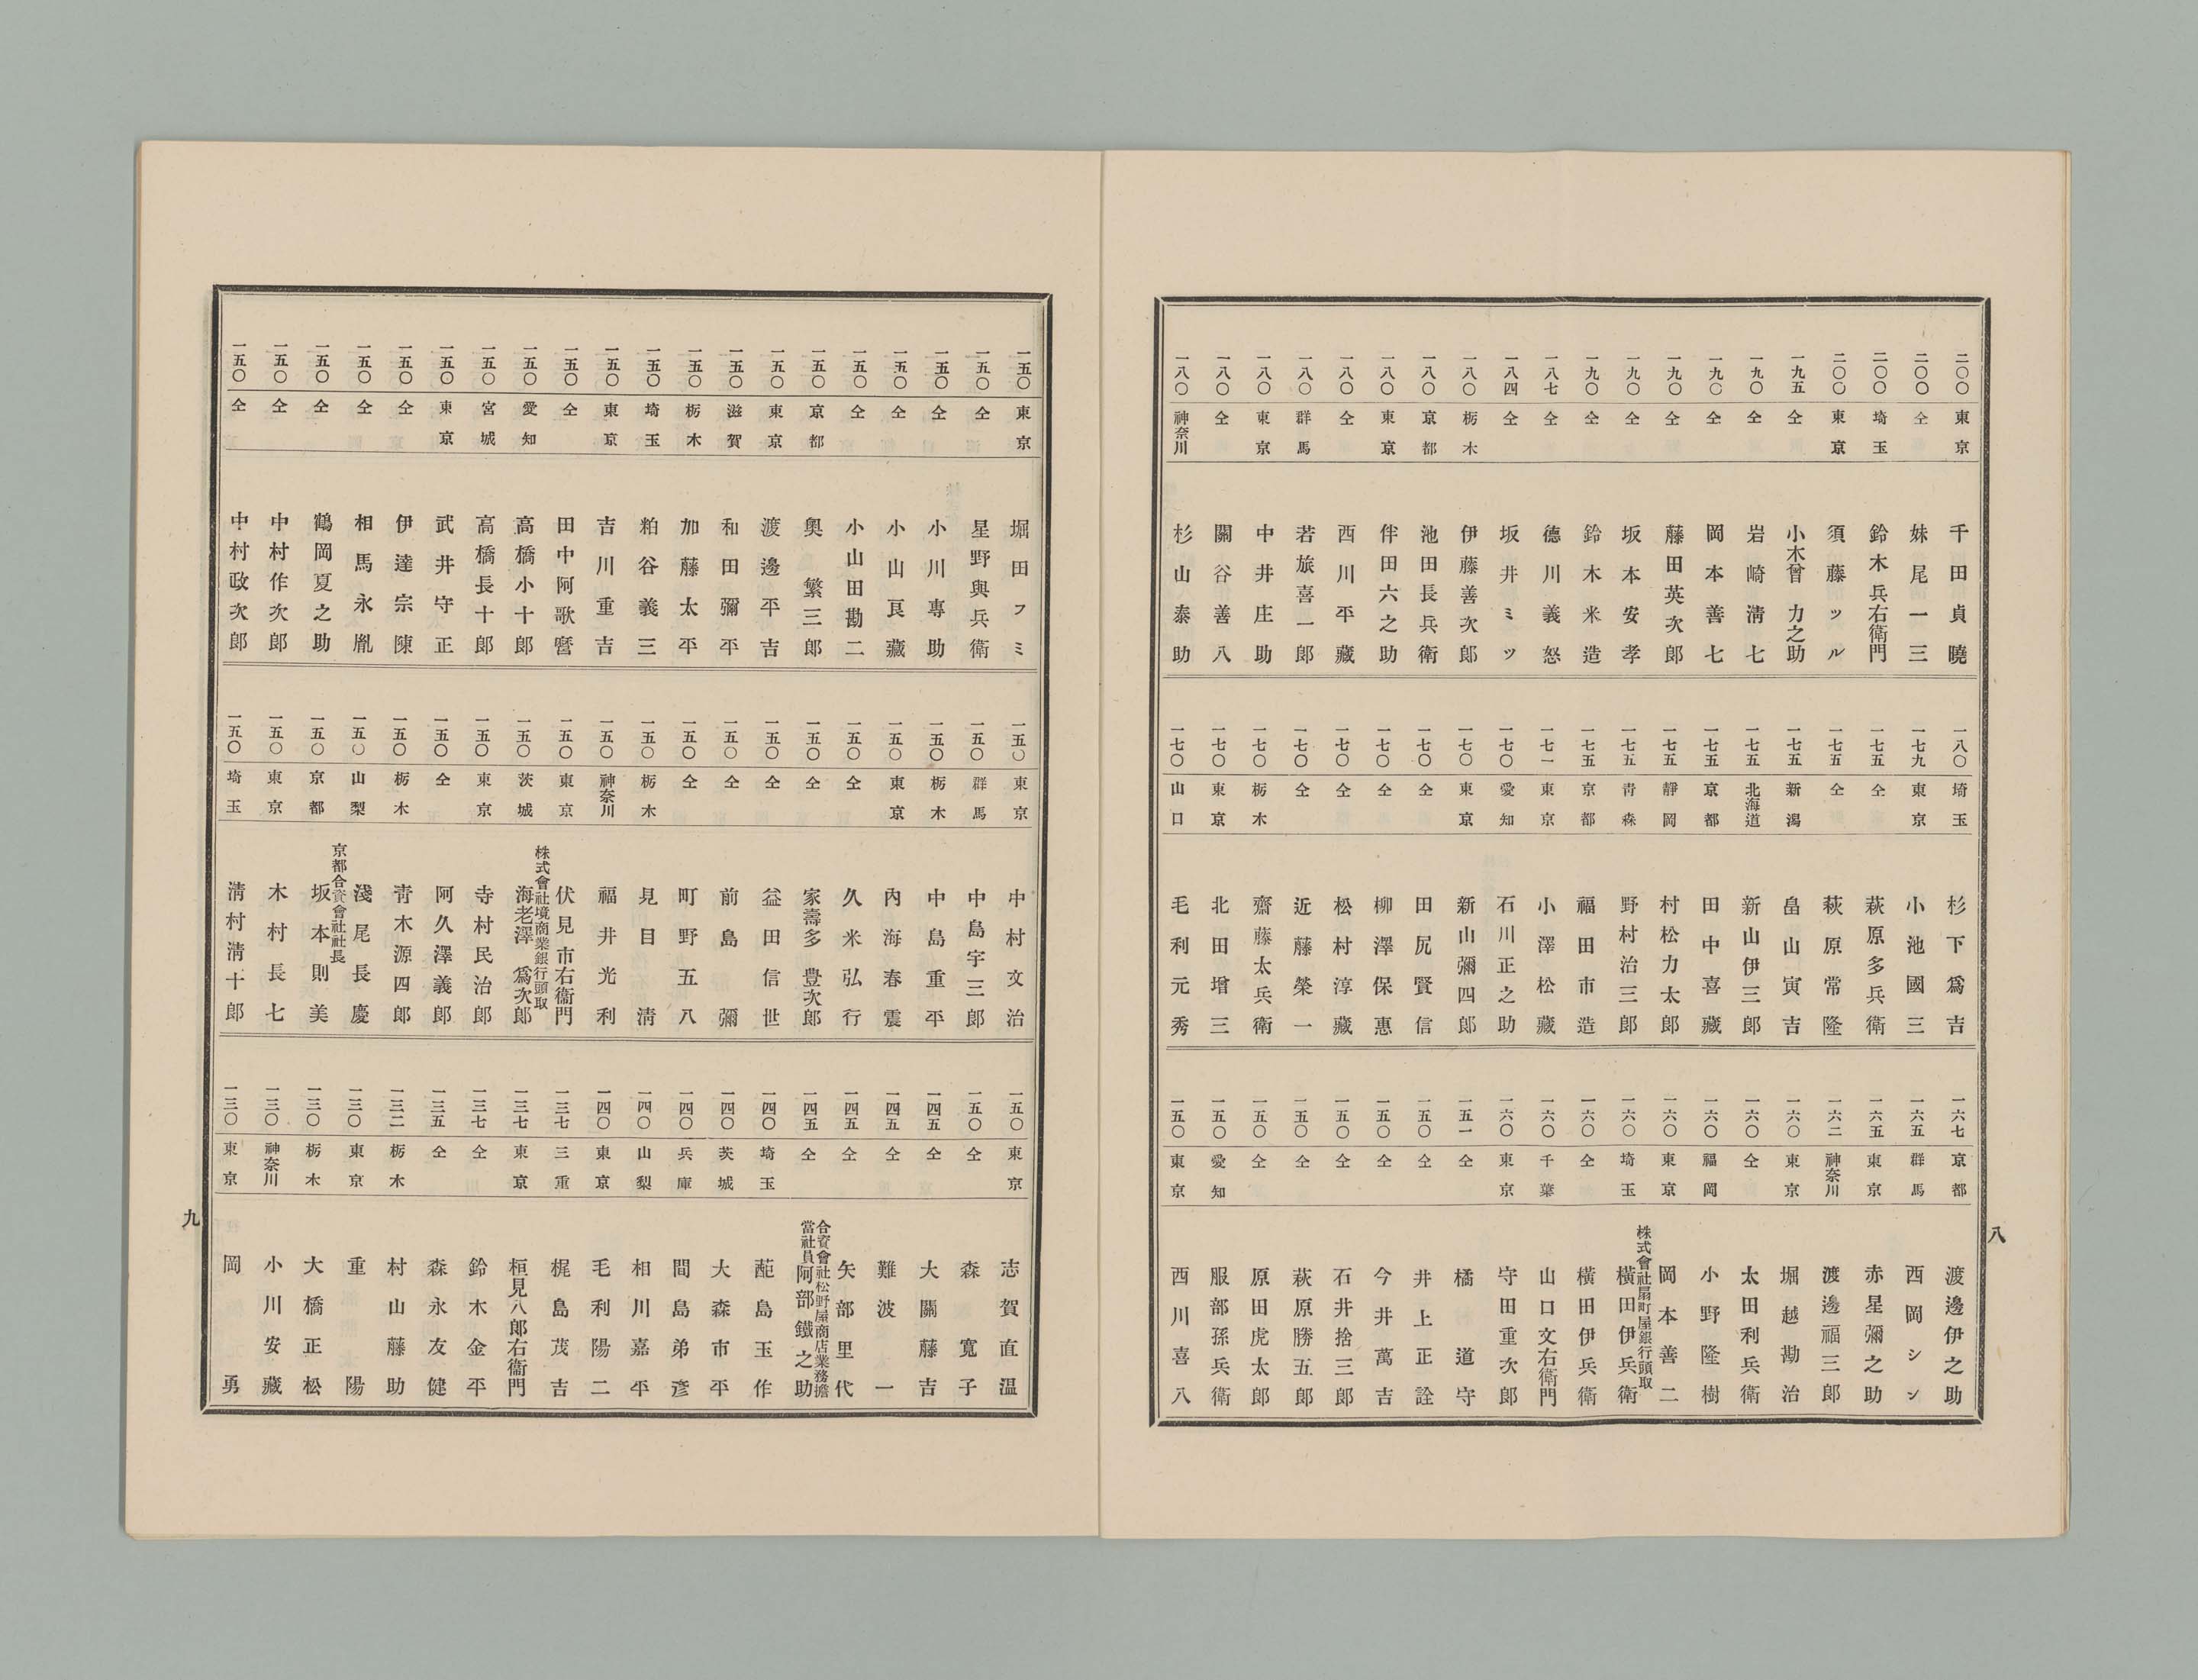 八
二〇〇 東京 千田貞曉
二〇〇 仝 妹尾清一三
二〇〇 埼玉 鈴木兵右衞門
二〇〇 東京 須藤ツル
一九五 仝 小木曾力之助
一九〇 仝 岩崎淸七
一九〇 仝 岡本善七
一九〇 仝 藤田英次郎
一九〇 仝 坂本安孝
一九〇 仝 鈴木米造
一八七 仝 德川義怒
一八四 仝 坂井ミツ
一八〇 栃木 伊藤善次郎
一八〇 京都 池田長兵衛
一八〇 東京 伴田六之助
一八〇 仝 西川平藏
一八〇 群馬 若旅喜一郎
一八〇 東京 中井庄助
一八〇 仝 關谷善八
一八〇 神奈川 杉山泰助
一八〇 埼玉 杉下爲吉
一七九 東京 小池國三
一七五 仝 萩原多兵衛
一七五 仝 萩原常隆
一七五 新潟 畠山寅吉
一七五 北海道 新山伊三郎
一七五 京都 田中喜藏
一七五 靜岡 村松力太郎
一七五 靑森 野村治三郎
一七五 京都 福田市造
一七一 東京 小澤松藏
一七〇 愛知 石川正之助
一七〇 東京 新山彌四郎
一七〇 仝 田尻賢信
一七〇 仝 柳澤保惠
一七〇 仝 松村淳藏
一七〇 仝 近藤榮一
一七〇 栃木 齋藤太兵衛
一七〇 東京 北田增三
一七〇 山口 毛利元秀
一六七 京都 渡邊伊之助
一六五 群馬 西岡シン
一六五 東京 赤星彌之助
一六二 神奈川 渡邊福三郎
一六〇 東京 堀越勘治
一六〇 仝 太田利兵衛
一六〇 福岡 小野隆樹
一六〇 東京 岡本善二
一六〇 埼玉 株式會社扇町屋銀行頭取 橫田伊兵衛
一六〇 仝 橫田伊兵衛
一六〇 千葉 山口文右衞門
一六〇 東京 守田重次郎
一五一 仝 橘道守
一五〇 仝 井上正詮
一五〇 仝 今井萬吉
一五〇 仝 石井捨三郎
一五〇 仝 萩原勝五郎
一五〇 仝 原田虎太郎
一五〇 愛知 服部孫兵衛
一五〇 東京 西川喜八
一五〇 東京 堀田フミ
一五〇 仝 星野與兵衛
一五〇 仝 小川專助
一五〇 仝 小山良藏
一五〇 仝 小山田勘二
一五〇 京都 奧繁三郎
一五〇 東京 渡邊平吉
一五〇 滋賀 和田彌平
一五〇 栃木 加藤太平
一五〇 埼玉 粕谷義三
一五〇 東京 吉川重吉
一五〇 仝 田中阿歌麿
一五〇 愛知 高橋小十郎
一五〇 宮城 高橋長十郎
一五〇 東京 武井守正
一五〇 仝 伊達宗陳
一五〇 仝 相馬永胤
一五〇 仝 鶴岡夏之助
一五〇 仝 中村作次郎
一五〇 仝 中村政次郎
一五〇 東京 中村文治
一五〇 群馬 中島宇三郎
一五〇 栃木 中島重平
一五〇 東京 內海春震
一五〇 仝 久米弘行
一五〇 仝 家壽多豊次郎
一五〇 仝 益田信世
一五〇 仝 前島彌
一五〇 仝 町野五八
一五〇 栃木 見目淸
一五〇 神奈川 福井光利
一五〇 東京 伏見市右衞門
一五〇 茨城 株式會社境商業銀行頭取 海老澤爲次郎
一五〇 東京 寺村民治郎
一五〇 仝 阿久澤義郎
一五〇 栃木 靑木源四郎
一五〇 山梨 淺尾長慶
一五〇 京都 京都合資會社社長 坂本則美
一五〇 東京 木村長七
一五〇 埼玉 淸村淸十郎
一五〇 東京 志賀直溫
一五〇 仝 森寬子
一四五 仝 大關藤吉
一四五 仝 難波一
一四五 仝 矢部里代
一四五 仝 合資會社松野屋商店業務擔當社員 阿部鐵之助
一四〇 埼玉 蓜島玉作
一四〇 茨城 大森市平
一四〇 兵庫 間島弟彥
一四〇 山梨 相川嘉平
一四〇 東京 毛利陽二
一三七 三重 梶島茂吉
一三七 東京 桓見八郎右衞門
一三七 仝 鈴木金平
一三五 仝 森永友健
一三二 栃木 村山藤助
一三〇 東京 重陽
一三〇 栃木 大橋正松
一三〇 神奈川 小川安藏
一三〇 東京 岡勇
九